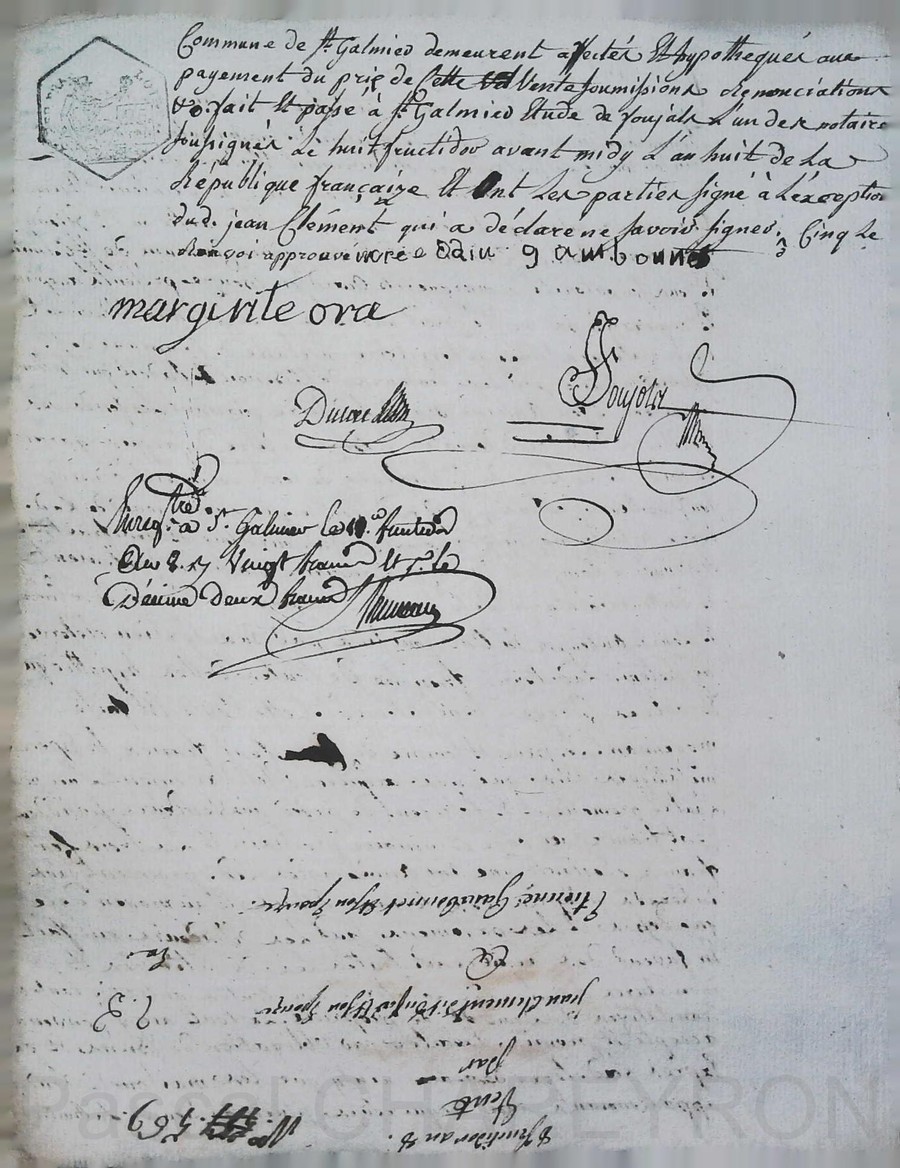 Commune de St. Galmier demeurent affectés Et hypothequés aux
payement du prix de Cette Vente soumissions Renonciations
&a. fait Et passé à St. Galmier Etude de Soujols L'un des notaire
soussignés Le huit fructidor avant midy L'an huit de La
République française Et Ont Les parties signé à L'exception
dud. jean Clément qui a déclaré ne savoir signer. Cinq
approuvé
margirite ora
Soujols
Enregtré. à St. Galmier le fructidor
An 8. Vingt francs Et pr. le
Décime Deux francs
Etienne Et son Epouze
Et
jean Clement dit Et son Epouze
Par
Vente
8 fructidor an 8.
No. 569
Pascal CHAPEYRON